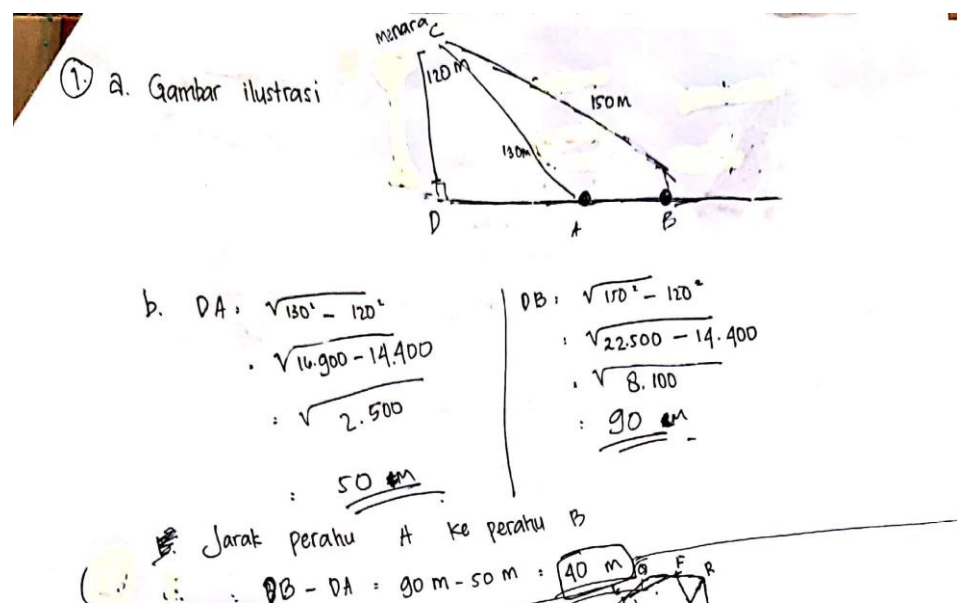 menara C
120 m
① a. Gambar ilustrasi
150 m
130m
D
A
B
b. DA : √130² - 120²
: √16.900 - 14.400
: √2.500
: 50 m
DB : √150² - 120²
: √22.500 - 14.400
: √8.100
: 90 m
Jarak perahu A ke perahu B
: DB - DA = 90 m - 50 m = 40 m
Q F R